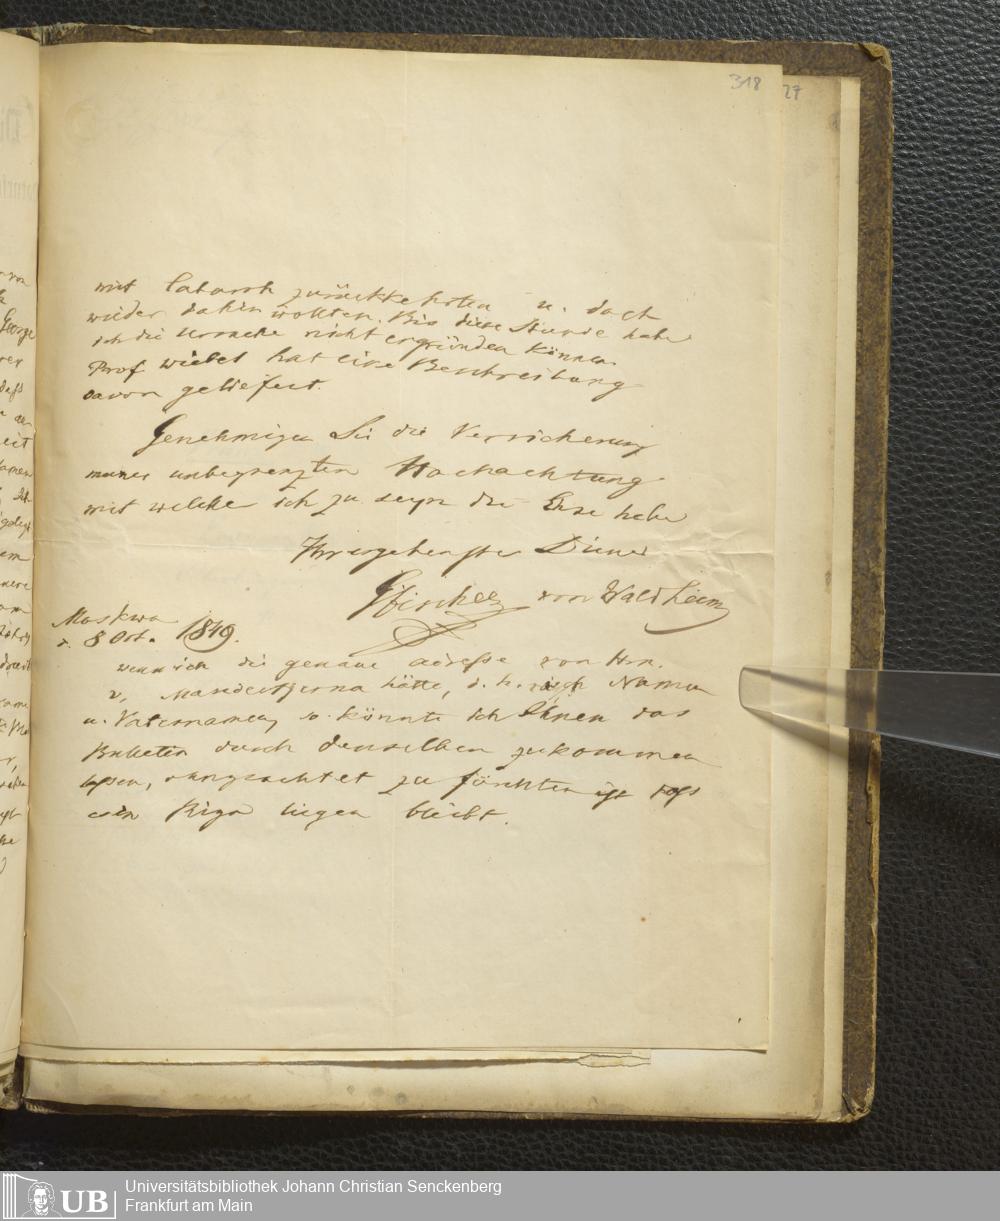 318
27
mit Catarrh zurückkehrten u. doch
wieder dahin wollten. Bis diese Stunde habe
ich die Ursache nicht ergründen können.
Prof Wiebel hat eine Beschreibung
davon geliefert.
Genehmigen Sie die Versicherung
meiner unbegrenzten Hochachtung
mit welcher ich zu seyn die Ehre habe
Ihr ergebenster Diener
Gfischer von Waldheim
Moskwa
d. 8 Oct. 1849.
wenn ich die genaue adresse von Hrn.
v. Manderstjerna hätte, d. h. Namen
u. Vatersnamen, so könnte ich Ihnen das
Bulletin durch denselben zukommen
lassen, ohngeachtet zu fürchten ist dass
es in Riga liegen bleibt.
George
UB
Universitätsbibliothek Johann Christian Senckenberg
Frankfurt am Main